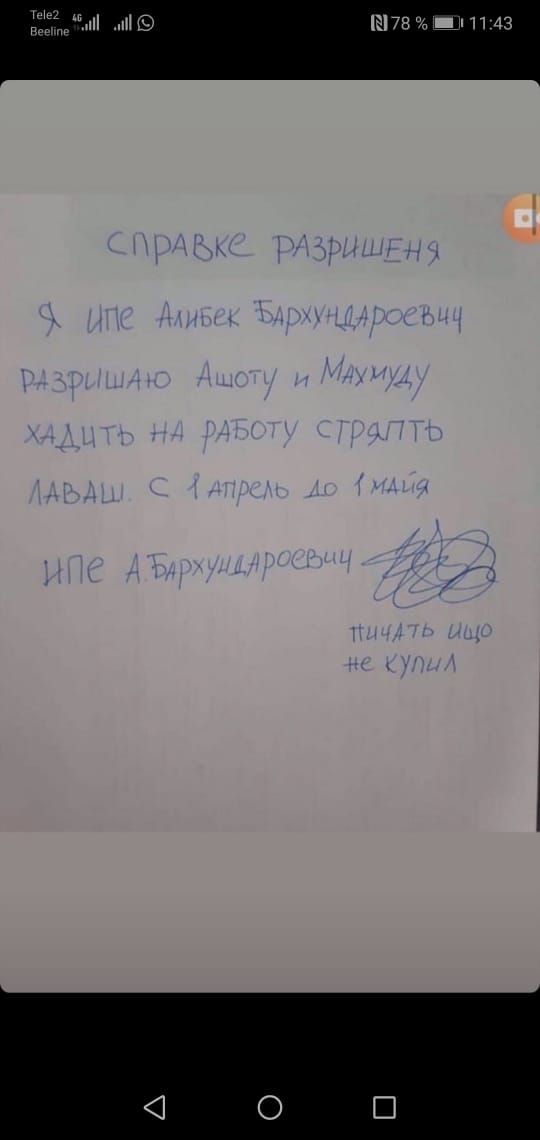 Tele2 4G 78 % 11:43
Beeline
СПРАВКЕ РАЗРИШЕНЯ
Я ИПЕ АЛИБЕК БАРХУНДАРОЕВИЧ
РАЗРИШАЮ АШОТУ И МАХМУДУ
ХАДИТЬ НА РАБОТУ СТРЯПТЬ
ЛАВАШ. С 1 АПРЕЛЬ ДО 1 МАЙЯ
ИПЕ А.БАРХУНДАРОЕВИЧ
ПИЧАТЬ ИЩО
НЕ КУПИЛ